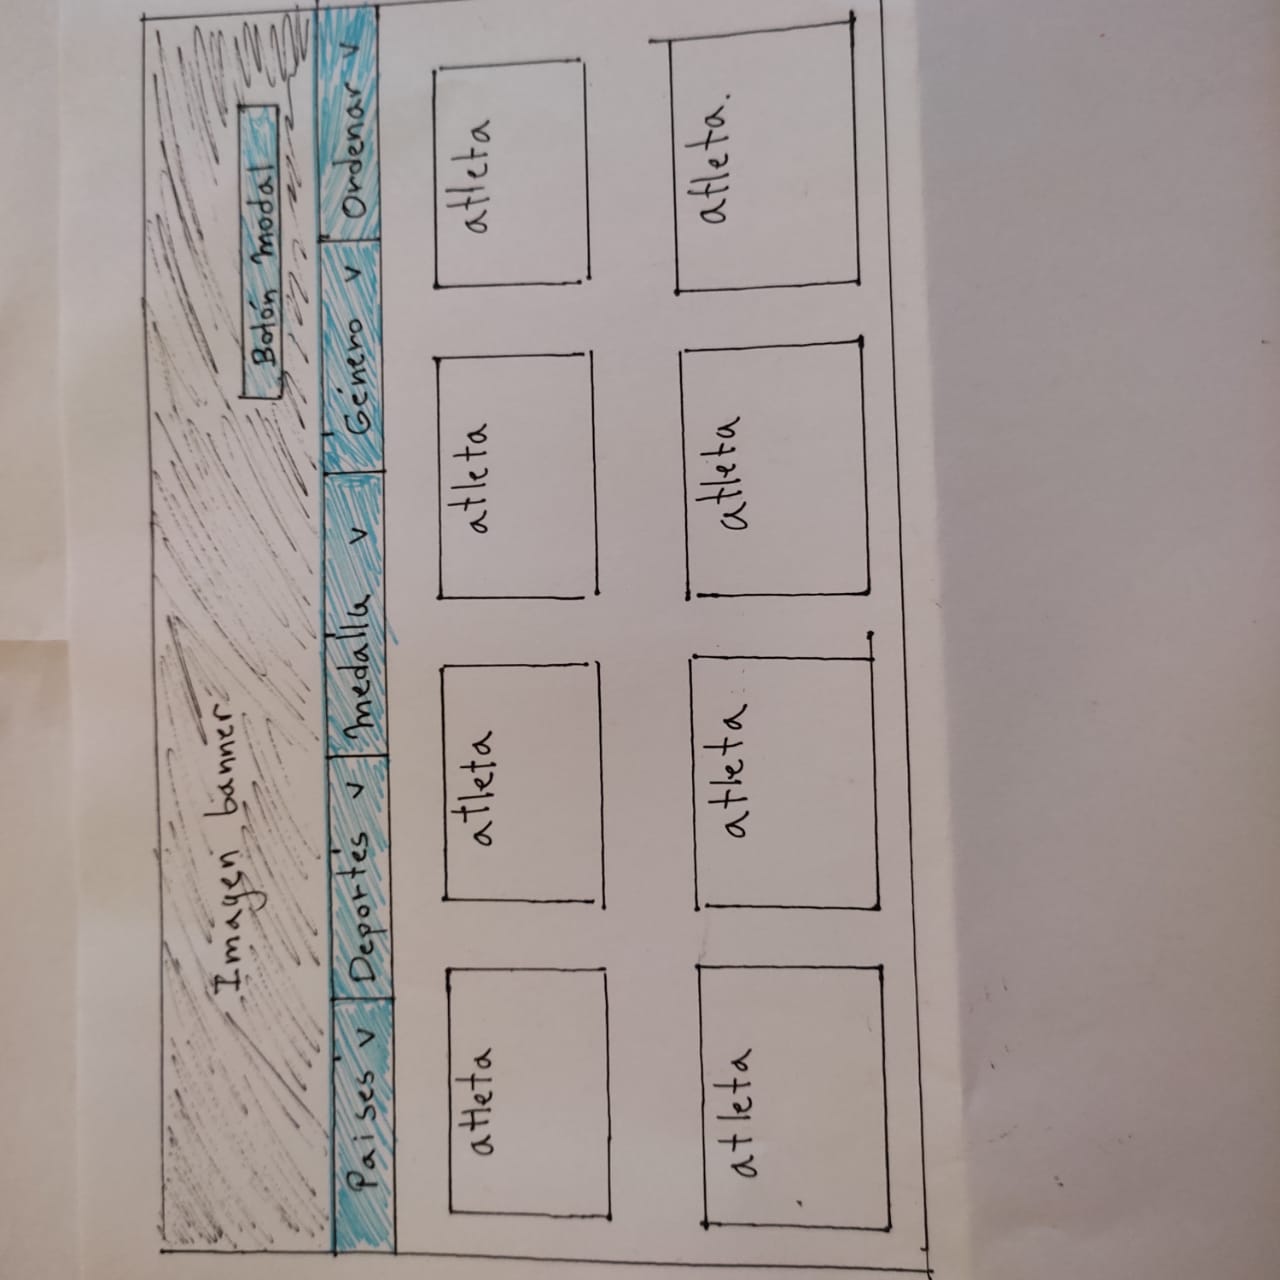 Imagen banner
Botón modal
Países v Deportes v medalla v Género v Ordenar v
atleta atleta atleta atleta
atleta atleta atleta atleta.